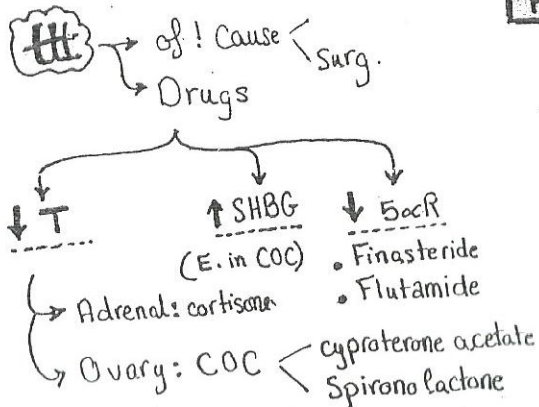 ttt → of ! Cause <
Surg.
→ Drugs
↓ T ↑ SHBG ↓ 5αR
(E. in COC) • Finasteride
• Flutamide
→ Adrenal: cortisone
→ Ovary: COC < cyproterone acetate
Spironolactone